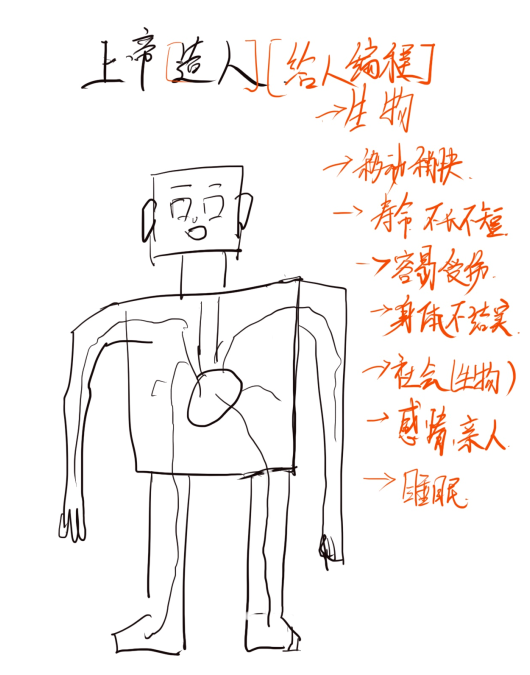 上帝[造人][给人编程]
→生物
→移动稍快
→寿命 不长不短
→容易受伤
→身体不结实
→社会(生物)
→感情,亲人
→睡眠